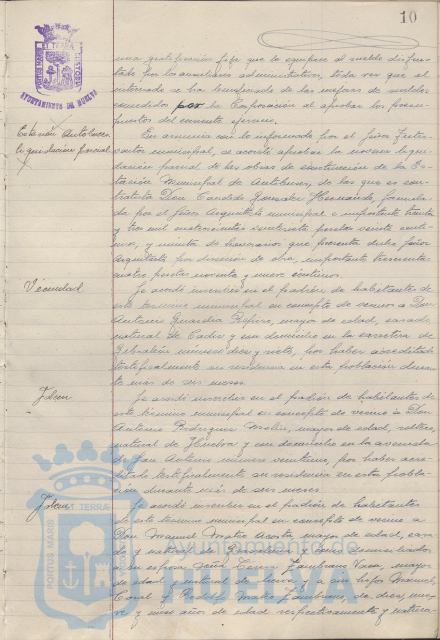 10
AYUNTAMIENTO DE HUELVA
una gratificación fija que lo equipare al sueldo disfru-
tado por los auxiliares administrativos, toda vez que el
interesado se ha beneficiado de las mejoras de sueldos
concedidas por la Corporación al aprobar los presu-
puestos del corriente ejercicio.
Estación Autobuses
liquidación parcial
En armonía con lo informado por el Señor Inter-
ventor municipal, se acordó aprobar la liqui-
dación parcial de las obras de construcción de la Es-
tación Municipal de Autobuses, de las que es con-
tratista Don Candido González Hernando, formula-
da por el Señor Arquitecto municipal e importante treinta
y tres mil pesetas veinte cénti-
mos, y minuta de honorarios que presenta dicho Señor
Arquitecto por dirección de obra, importante trescientas
cuatro pesetas noventa y nueve céntimos.
Vecindad
Se acordó inscribir en el padrón de habitantes de
este término municipal en concepto de vecino a Don
Antonio Guardia mayor de edad, casado,
natural de Cadiz y con domicilio en la carretera de
Gibraleón número diez y siete, por haber acreditado
testificalmente su residencia en esta población duran-
te más de seis meses.
Idem
Se acordó inscribir en el padrón de habitantes de
este término municipal en concepto de vecino a Don
Antonio Rodriguez Molin, mayor de edad, soltero,
natural de Huelva y con domicilio en la avenida
de San Antonio número veintiuno, por haber acre-
ditado testificalmente su residencia en esta pobla-
ción durante más de seis meses.
Idem
Se acordó inscribir en el padrón de habitantes
de este término municipal en concepto de vecino a
Don Manuel Mateo Acosta, mayor de edad, casa-
do, natural de y como domiciliados
a su esposa Doña Zambrano Vaca, mayor
de edad y natural de y a sus hijos Manuel,
y Mateo Zambrano, de diez, nue-
ve y once años de edad respectivamente y natura-
PORTUS MARIS ET TERRAE
Ayuntamiento de
HUELVA